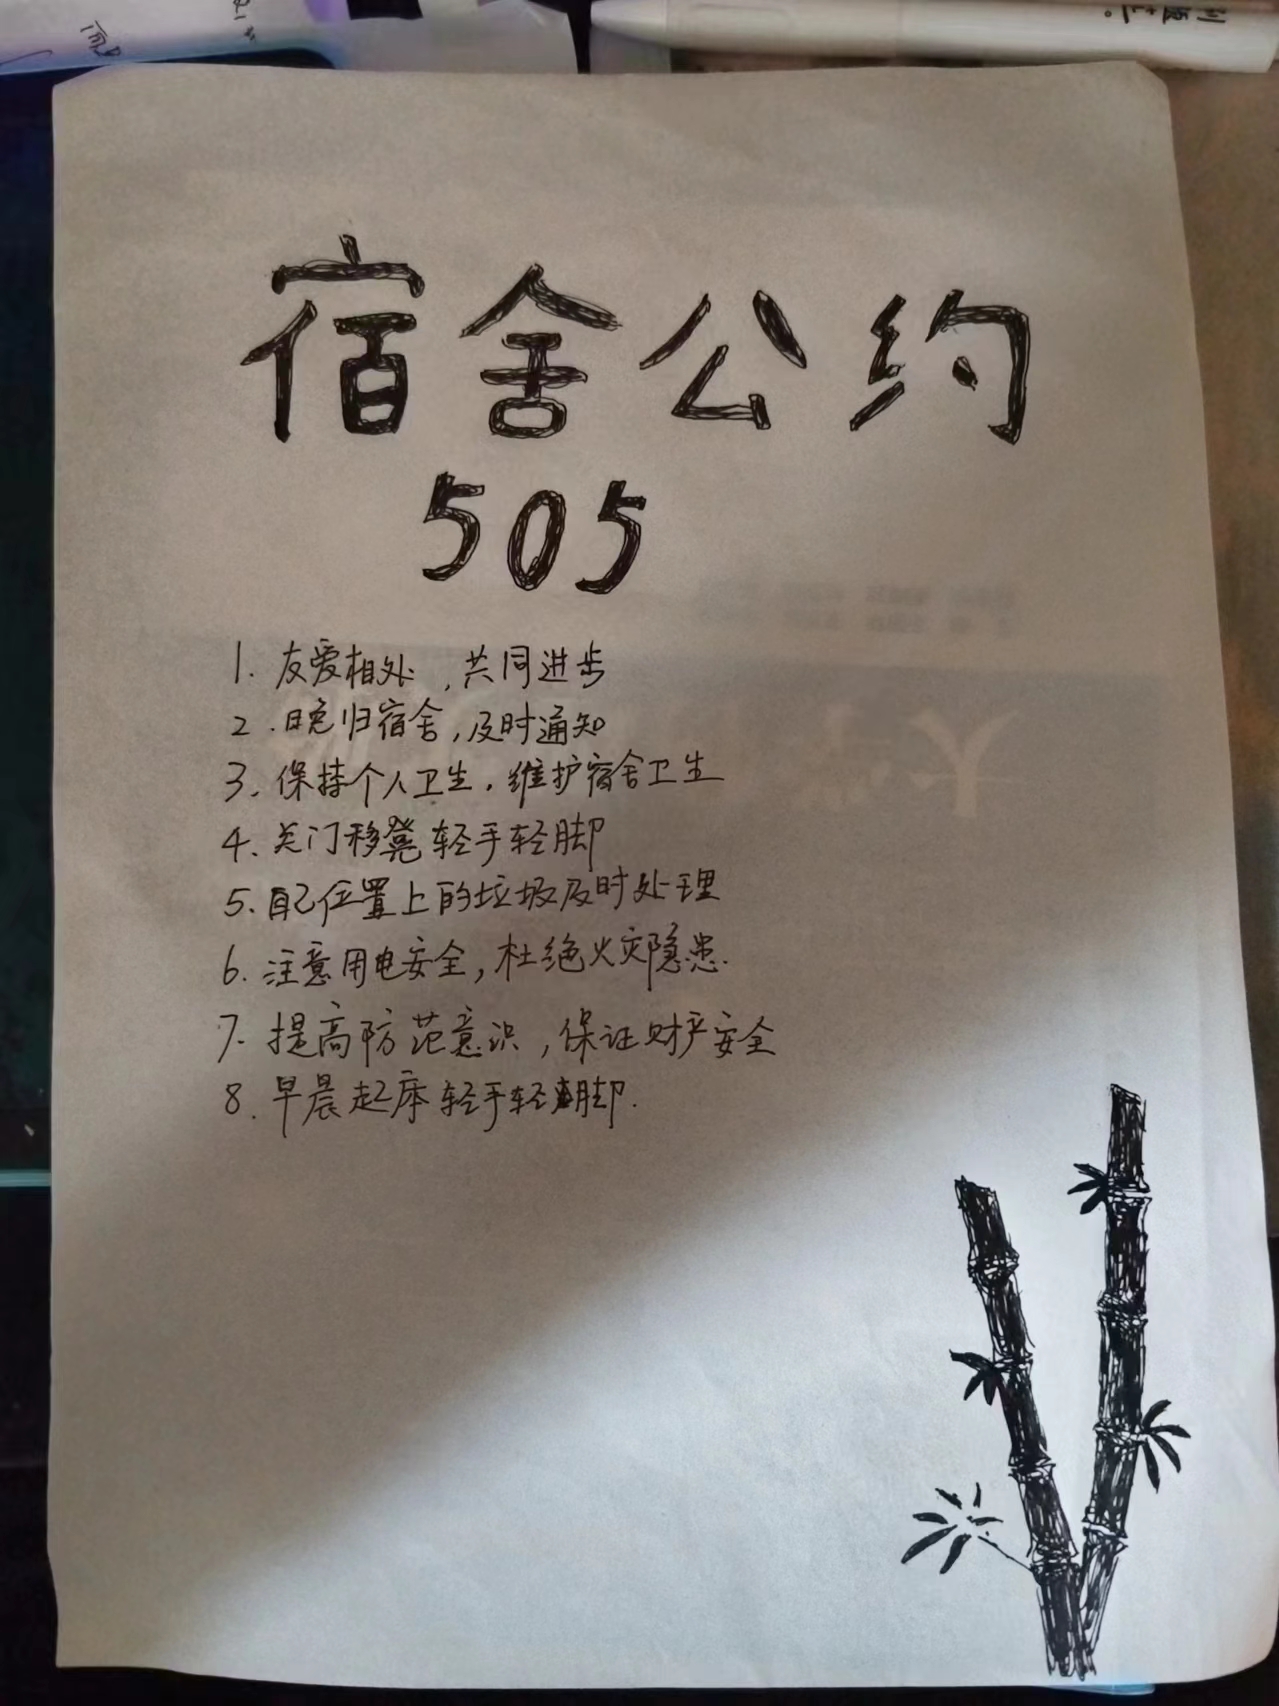 宿舍公约
505
1. 友爱相处，共同进步
2. 晚归宿舍，及时通知
3. 保持个人卫生，维护宿舍卫生
4. 关门移凳 轻手轻脚
5. 自己位置上的垃圾及时处理
6. 注意用电安全，杜绝火灾隐患.
7. 提高防范意识，保证财产安全
8. 早晨起床 轻手轻脚.